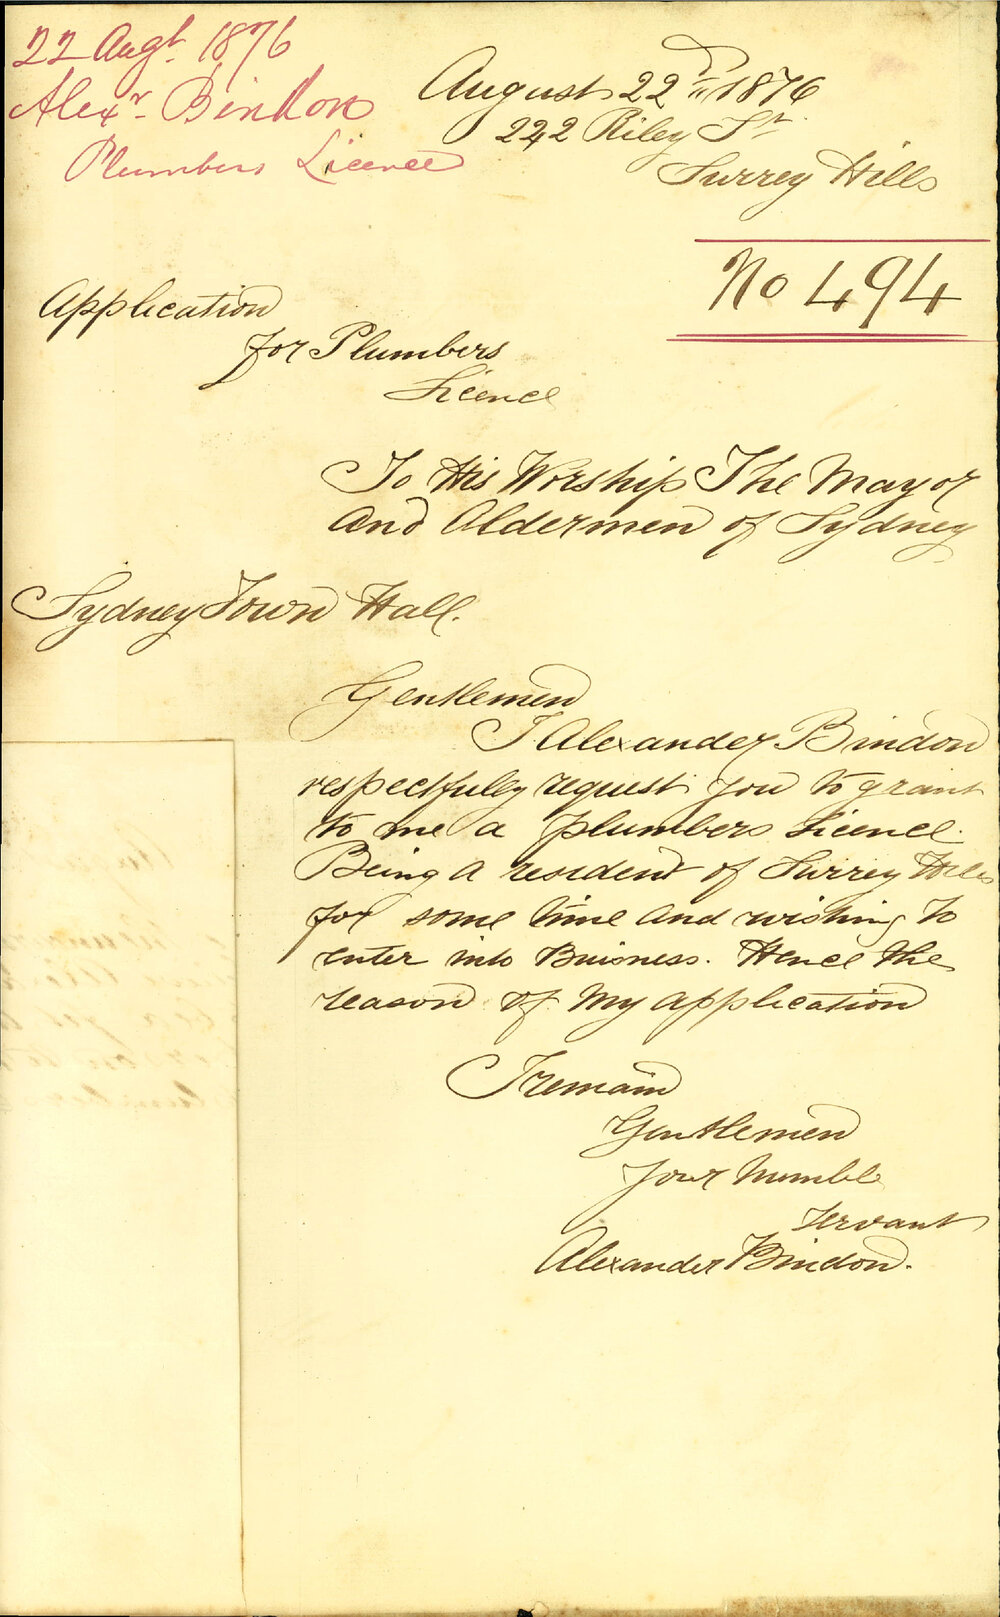 22 Augt. 1876
Alexr. Bindon
Plumbers Licence
August 22nd 1876
222 Riley St.
Surrey Hills
No 494
Application
for Plumbers
Licence
To His Worship The Mayor
And Aldermen of Sydney
Sydney Town Hall.
Gentlemen
I Alexander Bindon
respectfully request you to grant
to me a plumbers Licence.
Being a resident of Surrey Hills
for some time and wishing to
enter into Buisness. Hence the
reason of My application
I remain
Gentlemen
Your Humble
Servant
Alexander Bindon.